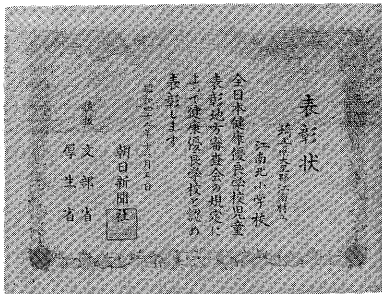 表彰状
埼玉県大里郡江南村
江南北小学校
全日本健康優良学校児童
表彰地方審査会の規定に
よって健康優良学校と認め
表彰します
朝日新聞社
後援
文部省
厚生省